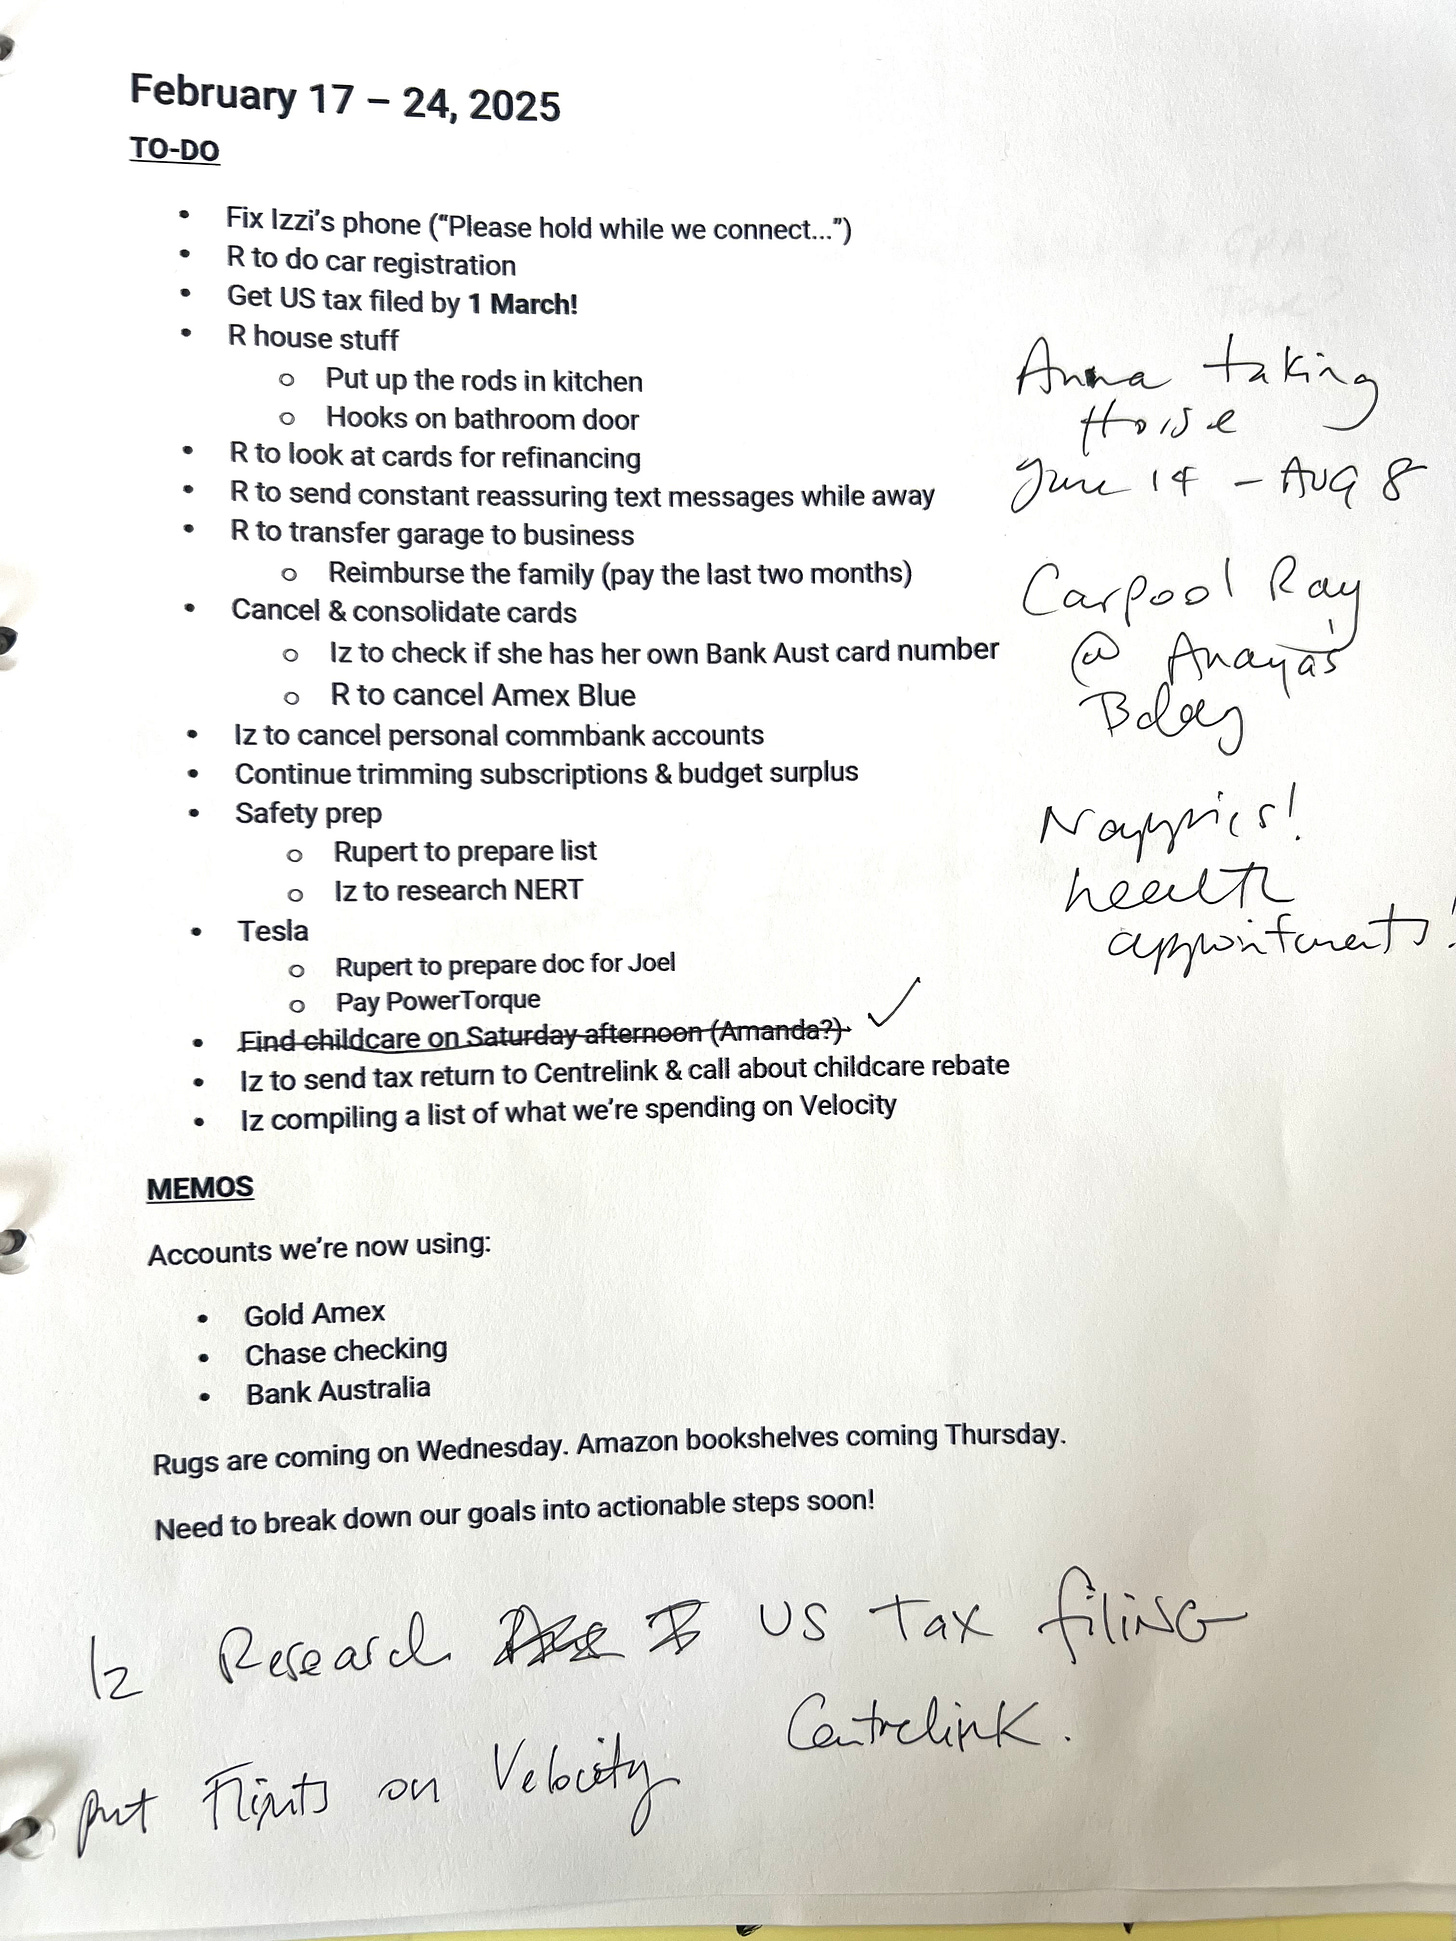 February 17 – 24, 2025
TO-DO
• Fix Izzi's phone ("Please hold while we connect...")
• R to do car registration
• Get US tax filed by 1 March!
• R house stuff
o Put up the rods in kitchen
o Hooks on bathroom door
• R to look at cards for refinancing
• R to send constant reassuring text messages while away
• R to transfer garage to business
o Reimburse the family (pay the last two months)
• Cancel & consolidate cards
o Iz to check if she has her own Bank Aust card number
o R to cancel Amex Blue
• Iz to cancel personal commbank accounts
• Continue trimming subscriptions & budget surplus
• Safety prep
o Rupert to prepare list
o Iz to research NERT
• Tesla
o Rupert to prepare doc for Joel
o Pay PowerTorque
• Find childcare on Saturday afternoon (Amanda?)
• Iz to send tax return to Centrelink & call about childcare rebate
• Iz compiling a list of what we're spending on Velocity
Anna taking
House
June 14 – Aug 8
Carpool Ray
@ Anaya's
Bday
Nappies!
health
appointments!
MEMOS
Accounts we're now using:
• Gold Amex
• Chase checking
• Bank Australia
Rugs are coming on Wednesday. Amazon bookshelves coming Thursday.
Need to break down our goals into actionable steps soon!
Iz Research US Tax filing
Centrelink.
put Flights on Velocity